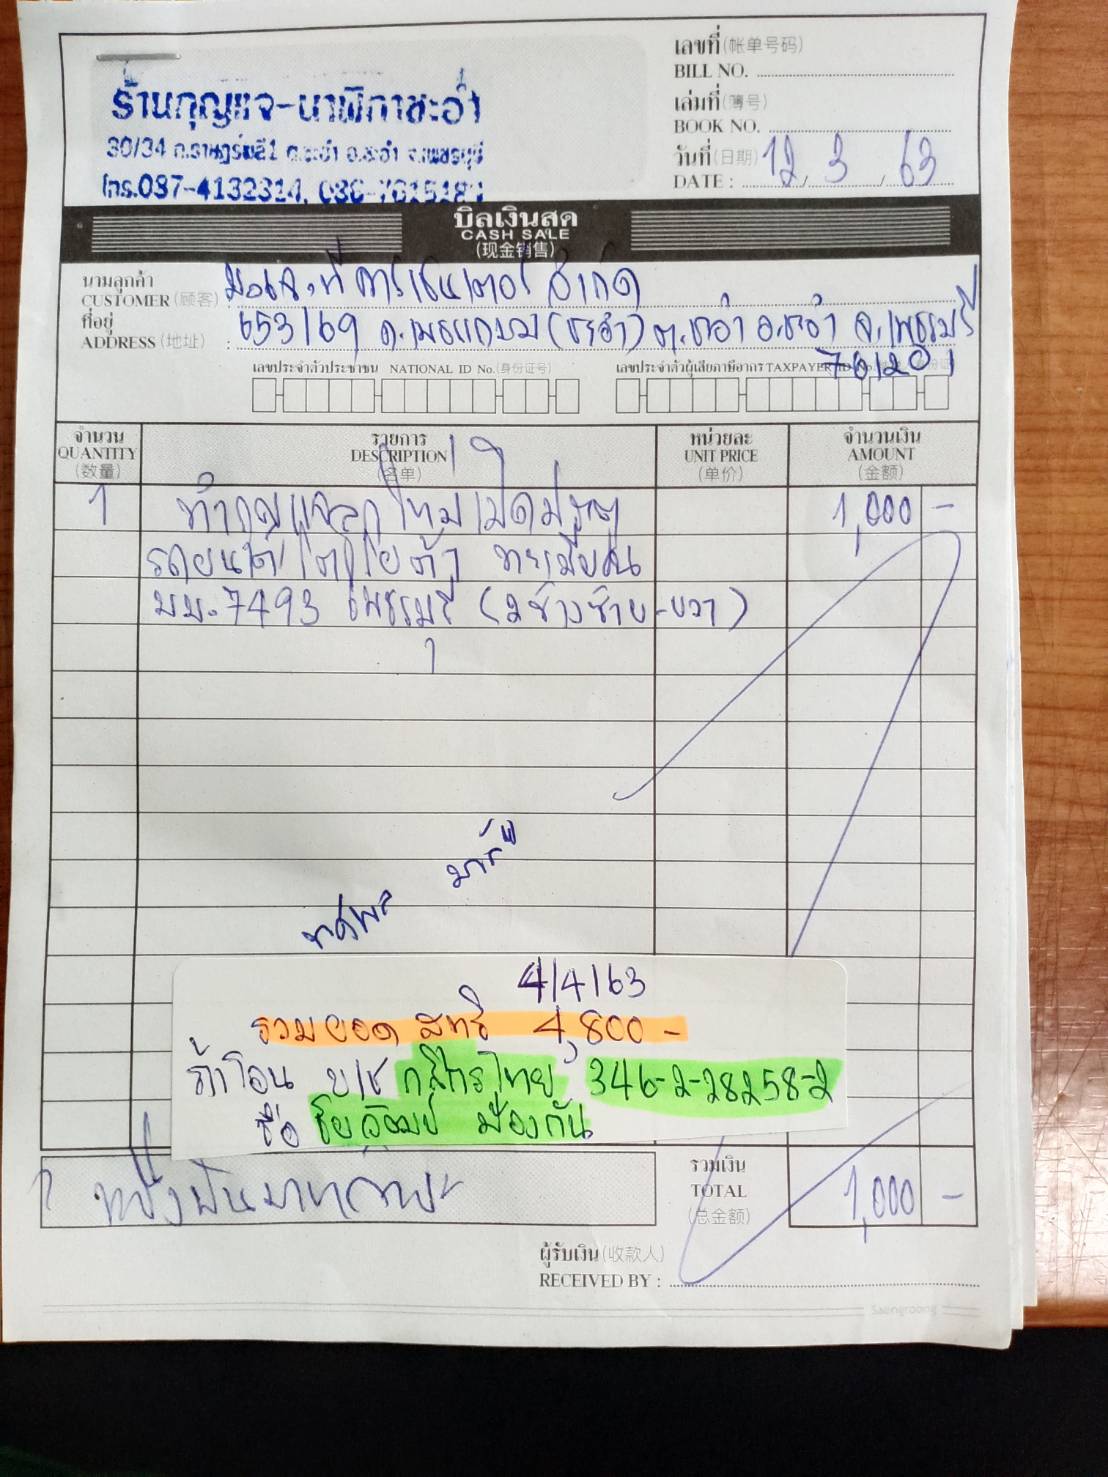 เลขที่ (帐单号码)
BILL NO.
เล่มที่ (簿号)
BOOK NO.
วันที่ (日期) 12 / 3 / 63
DATE :
ร้านกุญแจ-นาฬิกาชะอำ
30/34 ถ.ราษฎร์พลี1 ต.ชะอำ อ.ชะอำ จ.เพชรบุรี
โทร.087-4132314,
บิลเงินสด
CASH SALE
(现金销售)
นามลูกค้า
CUSTOMER (顾客) บ.เจ.ที คาร์เซ็นเตอร์ จำกัด
ที่อยู่
ADDRESS (地址) : 653/69 ถ.เพชรเกษม (ชะอำ) ต.ชะอำ อ.ชะอำ จ.เพชรบุรี
76120
เลขประจำตัวประชาชน NATIONAL ID No. (身份证号)
เลขประจำตัวผู้เสียภาษีอากร TAXPAYER
จำนวน รายการ หน่วยละ จำนวนเงิน
QUANTITY DESCRIPTION UNIT PRICE AMOUNT
(数量) (名单) (单价) (金额)
1 ทำกุญแจลูกใหม่เปิดประตู 1,000 -
รถยนต์โตโยต้า ทะเบียน
บบ.7493 เพชรบุรี (2ข้างซ้าย-ขวา)
ทศพล
4/4/63
รวมยอด สุทธิ 4,800 -
ร้านโอน บ/ช กสิกรไทย 346-2-28258-2
ชื่อ
หนึ่งพันบาทถ้วน
รวมเงิน
TOTAL 1,000 -
(总金额)
ผู้รับเงิน (收款人)
RECEIVED BY :
Saengroong